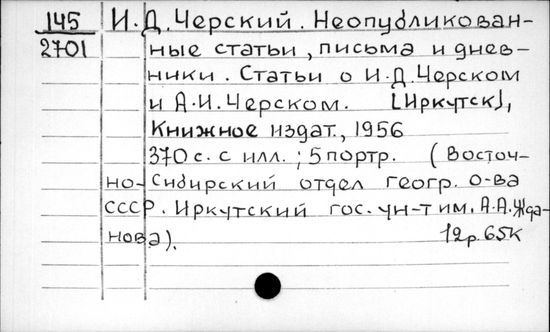 145 И.Д.Черский. Неопубликован-
2701 ные статьи, письма и днев-
ники. Статьи о И.Д.Черском
и А.И.Черском. [Иркутск],
Книжное издат., 1956
370 с. с илл.; 5 портр. (Восточ-
но-Сибирский отдел геогр. о-ва
СССР. Иркутский гос. ун-т им. А.А.Жда-
нова). 12р.65к